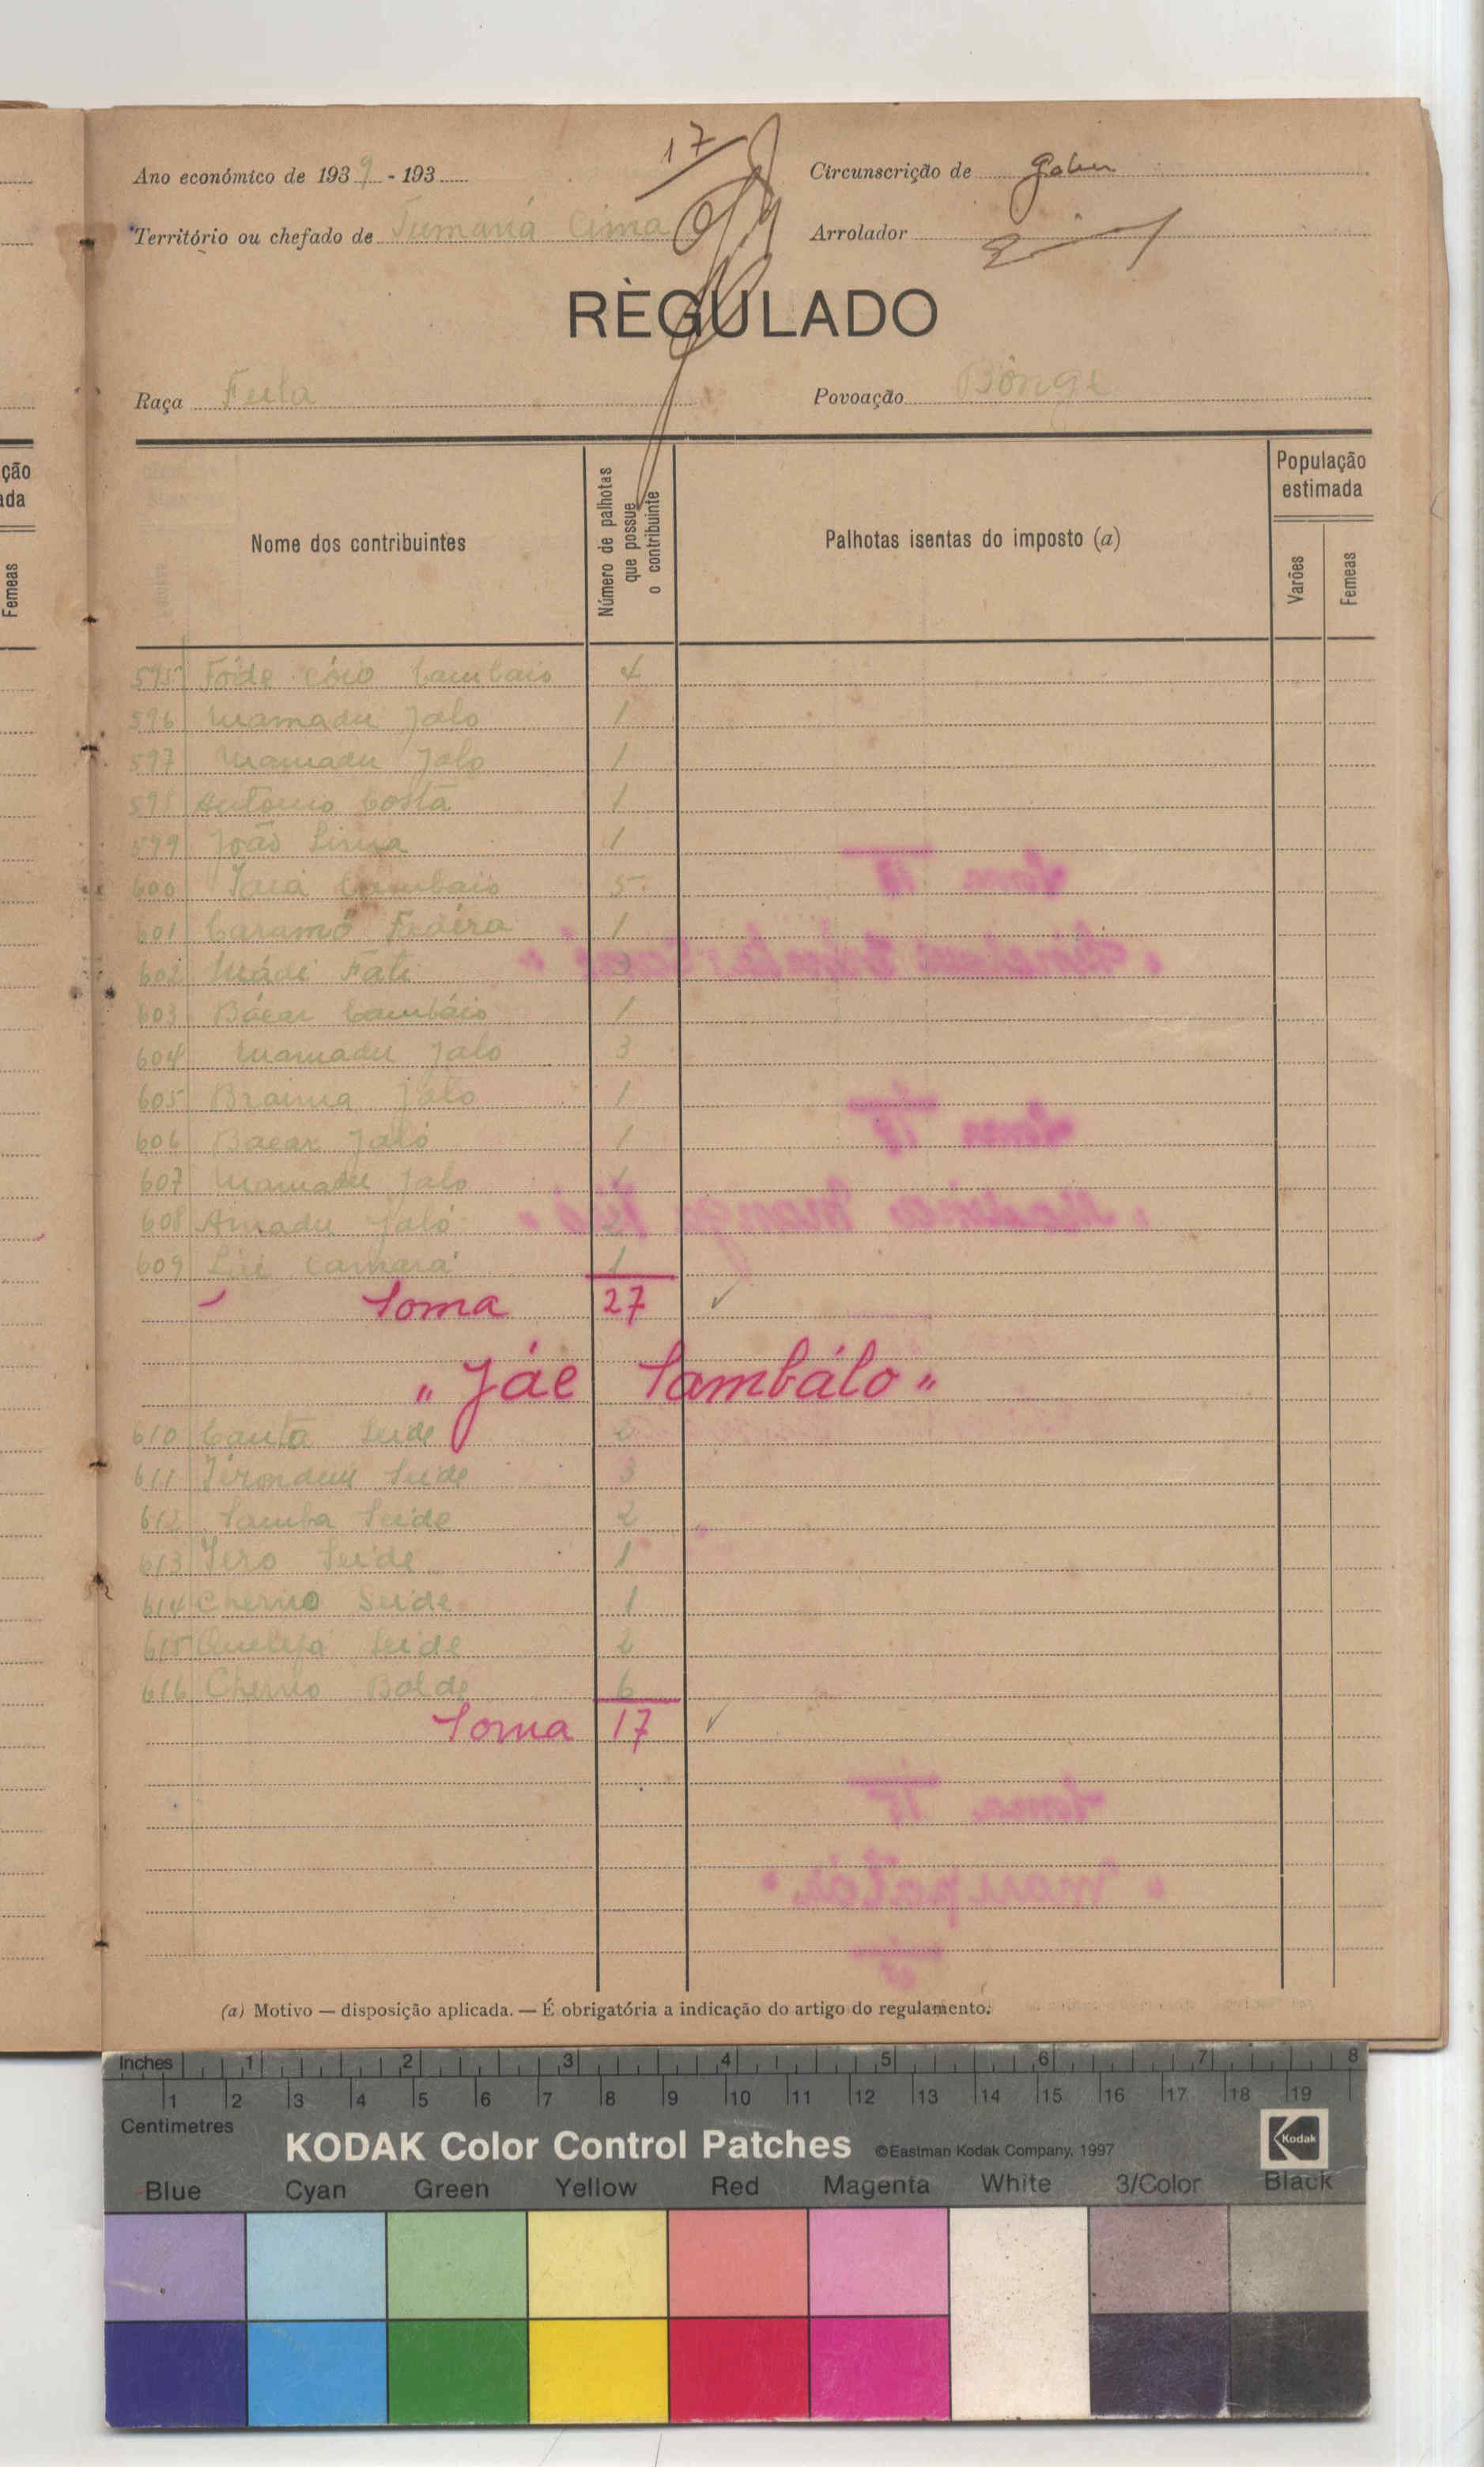 17
Ano económico de 1939 - 193
Circunscrição de Gabu
Território ou chefado de Tumaná Cima
Arrolador
RÈGULADO
Raça Fula
Povoação Bônge
ção
ada
Femeas
Nome dos contribuintes
Número de palhotas que possue o contribuinte
Palhotas isentas do imposto (a)
População estimada
Varões
Femeas
595 Fóde cambaio 4
596 Mamadu Jaló 1
597 Mamadu Jaló 1
598 António Costa 1
599 João Lima 1
600 Cambaio 5
601 Caramô 1
602 Fati 3
603 Bácar Cambáio 1
604 Mamadu Jaló 3
605 Braima Jaló 1
606 Bacar Jaló 1
607 Mamadu Jaló 1
608 Amadu Jaló 2
609 Camara 1
Soma 27
"Jáe Sambálo"
610 Seide 2
611 Seide 3
612 Samba Seide 2
613 Iero Seide 1
614 Cherno Seide 1
615 Quelefa Seide 2
616 Cherno Balde 6
Soma 17
(a) Motivo — disposição aplicada. — É obrigatória a indicação do artigo do regulamento.
Inches 1 2 3 4 5 6 7 8
1 2 3 4 5 6 7 8 9 10 11 12 13 14 15 16 17 18 19
Centimetres
KODAK Color Control Patches ©Eastman Kodak Company, 1997 Kodak
Blue Cyan Green Yellow Red Magenta White 3/Color Black